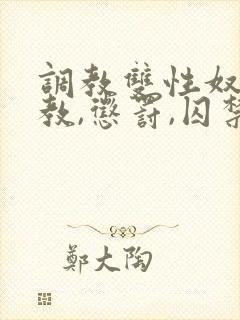 調教雙性奴
教,懲罰,囚禁
鄭大陶